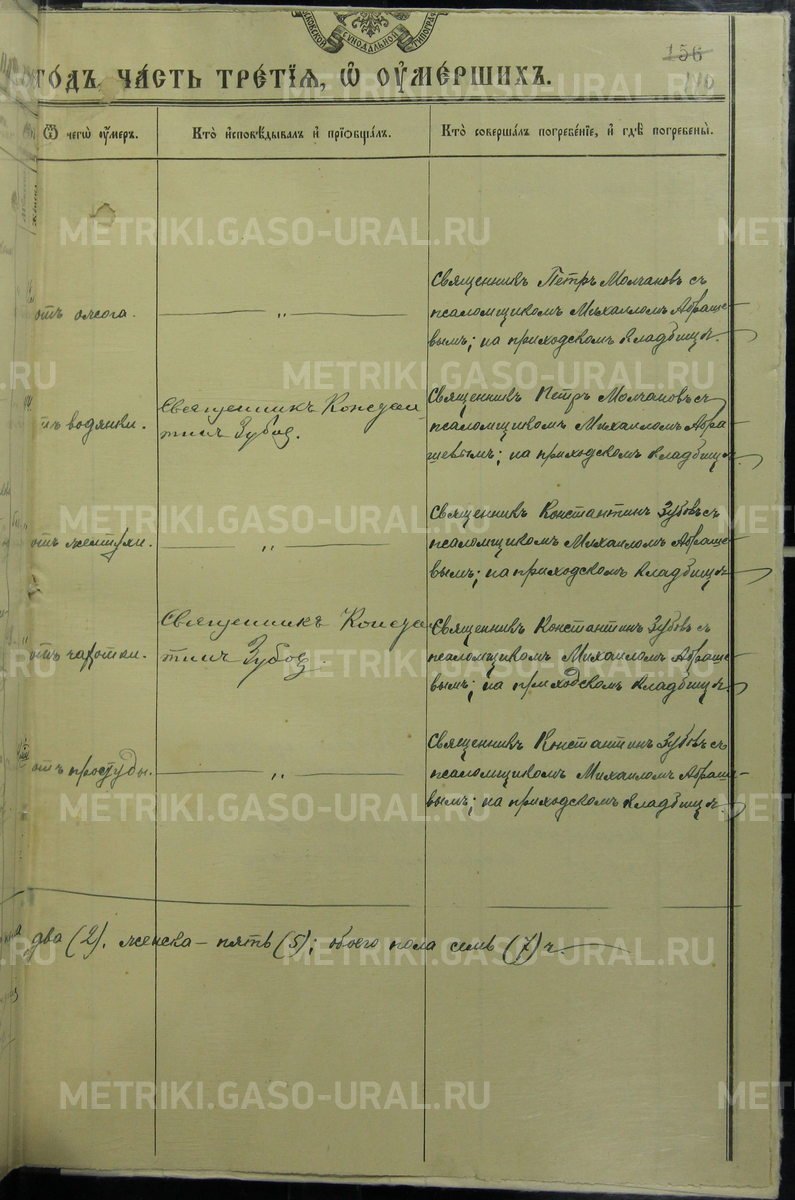 МОСКОВСКОЙ СУНОДАЛЬНОЙ ТИПОГРАФ
156
110
ГО́ДЪ, ЧА́СТЬ ТРЕ́ТЇѦ, Ѿ ОУ҆МЕ́РШИХЪ.
Ѿ чегѡ̀ оу҆́меръ.
Кто̀ и҆сповѣ́дывалъ и҆ прїѡбща́лъ.
Кто̀ соверша́лъ погребе́нїе, и҆ гдѣ̀ погребены̀.
отъ ожога.
— „ —
Священникъ Петръ Молчановъ съ
псаломщикомъ Михаиломъ Абраше-
вымъ; на приходскомъ кладбищѣ.
отъ водянки.
Священникъ Констан-
тинъ Зубов.
Священникъ Петръ Молчановъ съ
псаломщикомъ Михаиломъ Абра-
шевымъ; на приходскомъ кладбищѣ.
отъ желтухи.
— „ —
Священникъ Константинъ Зубовъ съ
псаломщикомъ Михаиломъ Абраше-
вымъ; на приходскомъ кладбищѣ
отъ чахотки.
Священникъ Конста-
тинъ Зубов.
Священникъ Константинъ Зубовъ съ
псаломщикомъ Михаиломъ Абраше-
вымъ; на приходскомъ кладбищѣ
отъ простуды.
— „ —
Священникъ Константинъ Зубовъ съ
псаломщикомъ Михаиломъ Абраше-
вымъ; на приходскомъ кладбищѣ.
два (2), женска – пять (5); обоего пола семь (7) ч.
METRIKI.GASO-URAL.RU